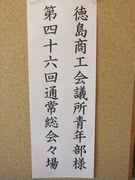 徳島商工会議所青年部様
第四十六回通常総会々場